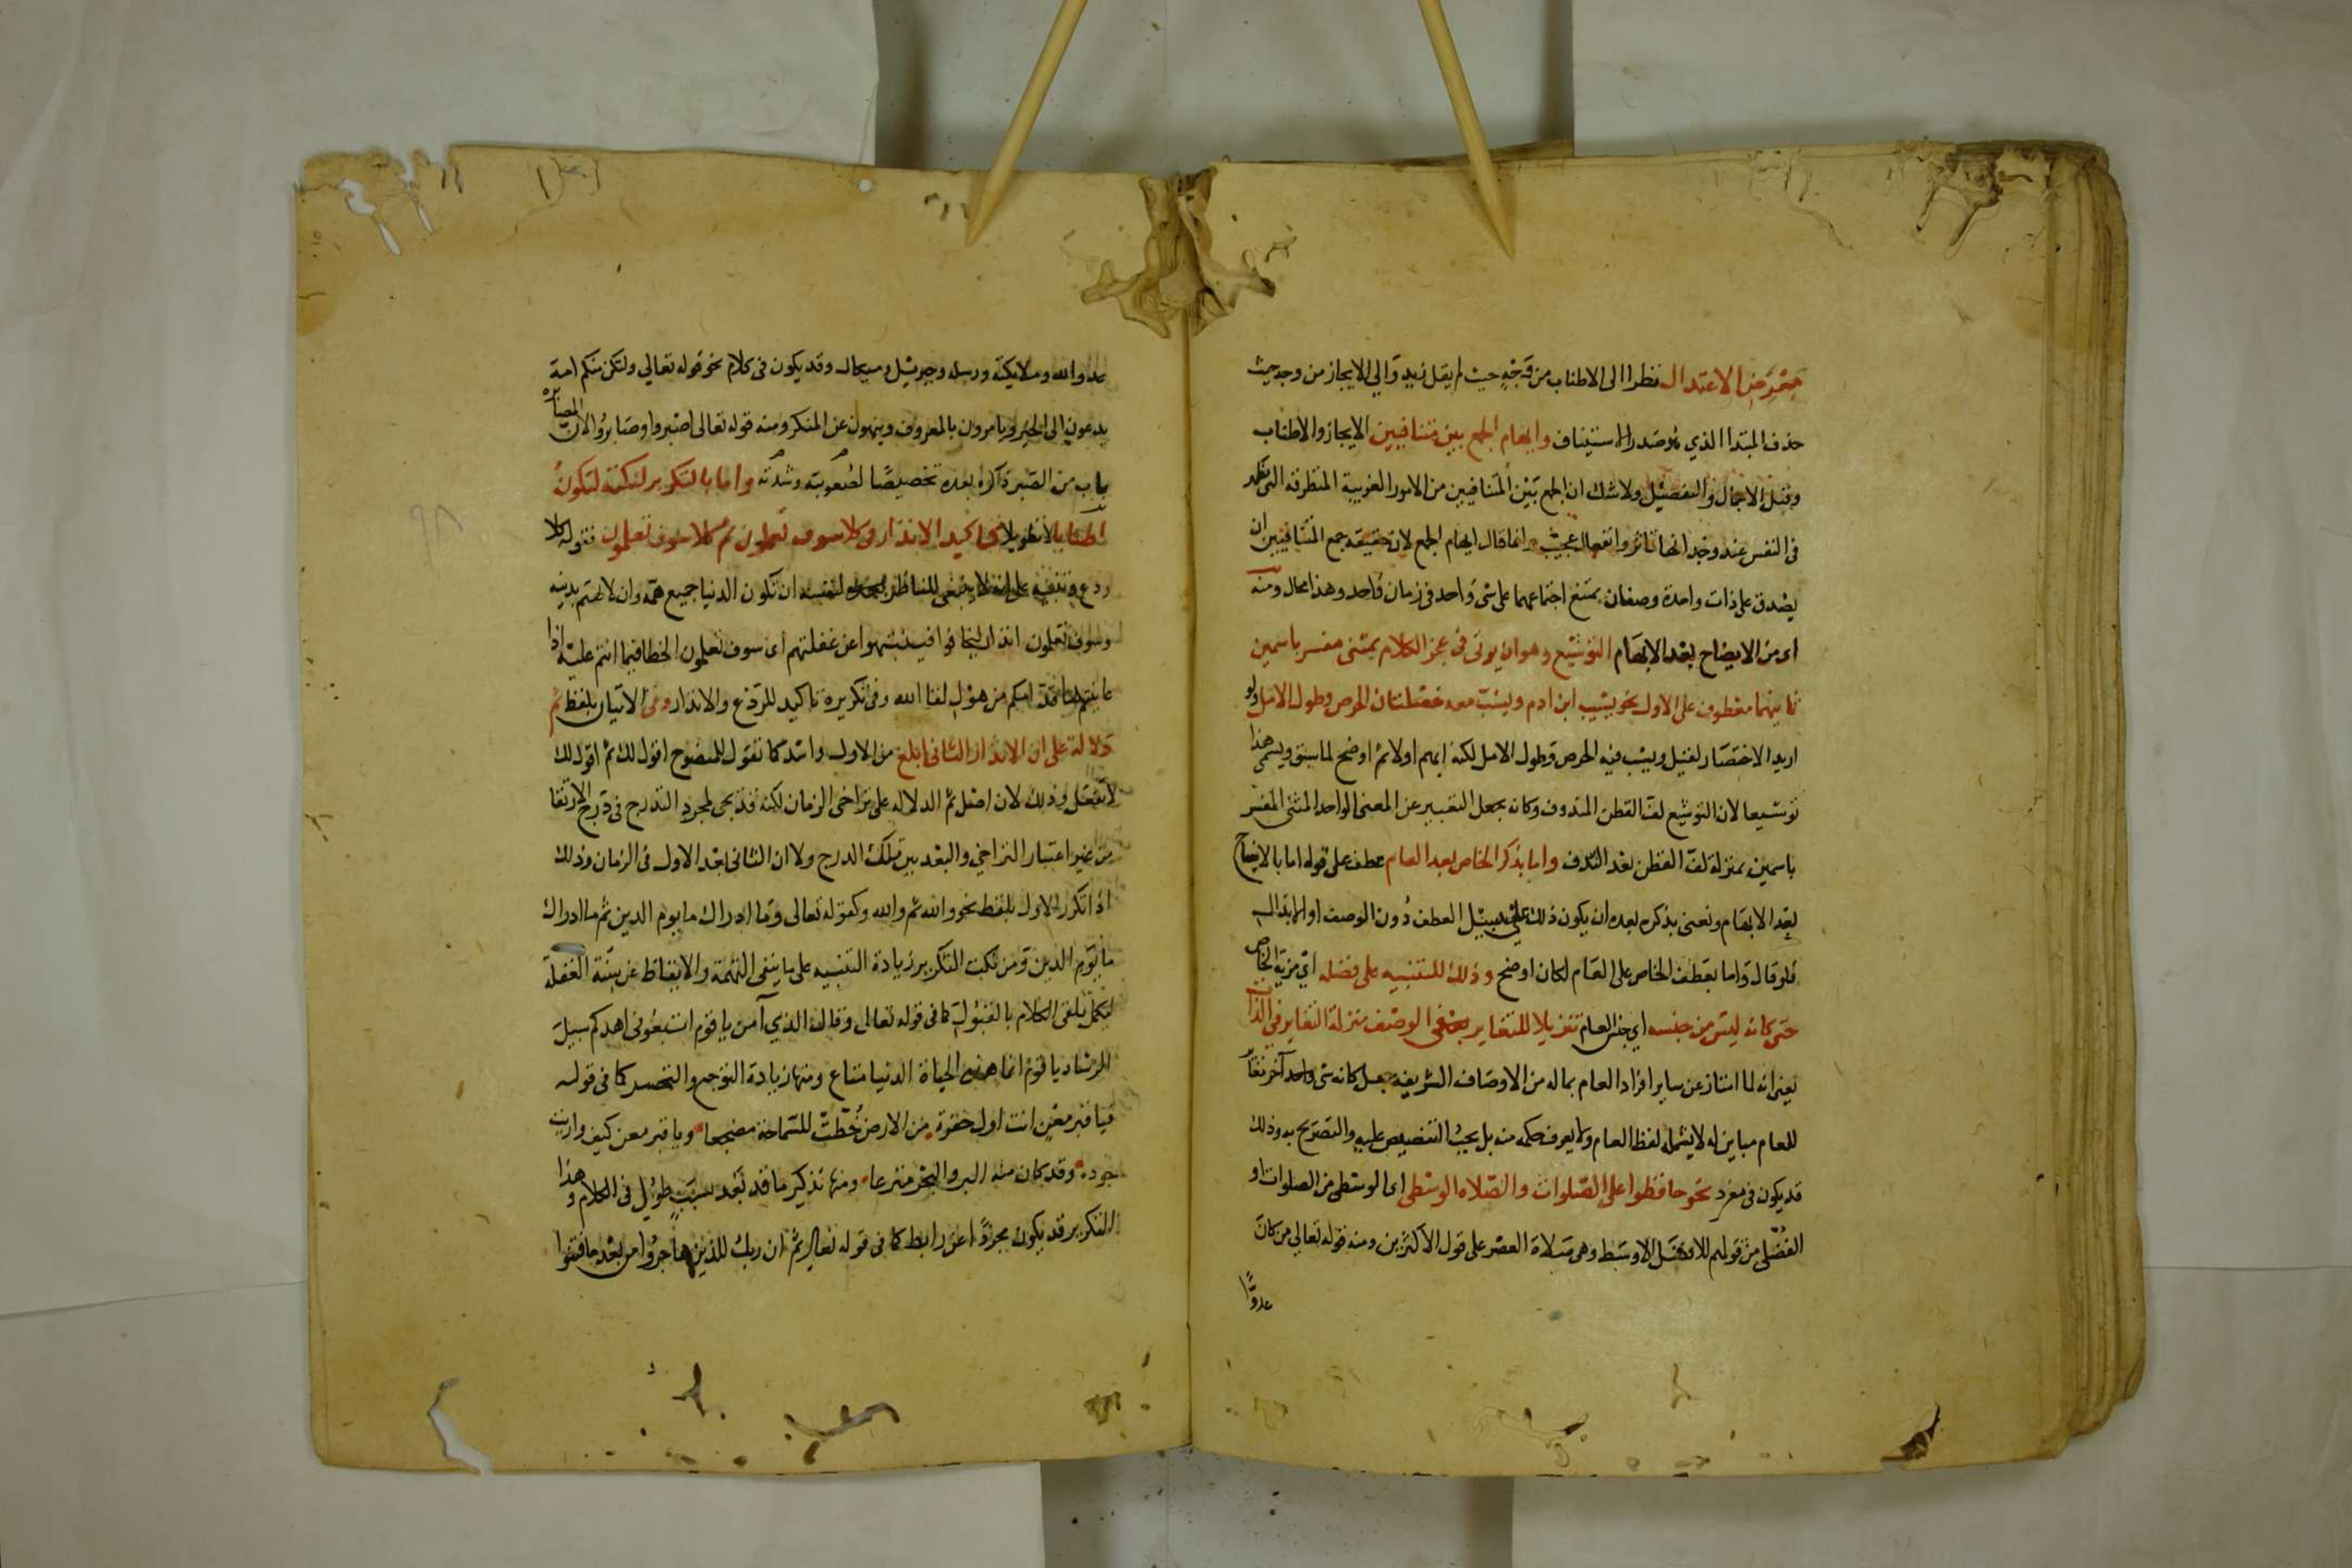 معرض الاعتدال نظرا الى الاطناب من وجه حيث لم يقل نعم زيد والي الايجاز من وجه حيث
حذف المبتدا الذي هو صدر الاستيناف وايهام الجمع بين متنافيين الايجاز والاطناب
وقيل الاجمال والتفصيل ولا شك ان الجمع بين المتنافيين من الامور الغريبة المستظرفه التي تظهر
في النفس عند وجدانها تاثر وانفعال عجيب وانما قال ايهام الجمع لان حقيقة جمع المتنافيين ان
يصدق على ذات واحدة وصفان يمتنع اجتماعهما على شي واحد في زمان واحد وهذا محال ومنه
اي من الايضاح بعد الابهام التوشيع وهو ان يوتى في عجز الكلام بمثنى مفسر باسمين
ثانيهما معطوف على الاول نحو يشيب ابن ادم ويشب معه خصلتان الحرص وطول الامل ولو
اريد الاختصار لقيل ويشب فيه الحرص وطول الامل لكنه ابهم اولا ثم اوضح لما سبق ويسمى هذا
توشيعا لان التوشيع لف القطن المندوف وكانه يجعل التعبير عن المعنى الواحد المثنى المفسر
باسمين بمنزلة لف القطن بعد الندف واما بذكر الخاص بعد العام عطف على قوله اما بالايضاح
بعد الابهام ونعني بذكره بعده ان يكون ذلك على سبيل العطف دون الوصف او الابدال
فلو قال واما بعطف الخاص على العام لكان اوضح وذلك للتنبيه على فضله اي مزية الخاص
حتى كانه ليس من جنسه اي جنس العام تنزيلا للتغاير في الوصف منزلة التغاير في الذات
يعني انه لما امتاز عن ساير افراد العام بماله من الاوصاف الشريفة جعل كانه شي واحد آخر مغاير
للعام مباين له لا يشمله لفظ العام ولا يعرف حكمه منه بل يجب التنصيص عليه والتصريح به وذلك
قد يكون في مفرد نحو حافظوا على الصلوات والصلاه الوسطى اي الوسطى من الصلوات او
الفضلى من قولهم للافضل الاوسط وهي صلاة العصر على قول الاكثرين ومنه قوله تعالي من كان
عدوًّا
عدوا لله وملايكته ورسله وجبرئيل وميكال وقد يكون في كلام نحو قوله تعالي ولتكن منكم امة
يدعون الى الخير ويامرون بالمعروف وينهون عن المنكر ومنه قوله تعالى اصبروا وصابروا لان المصابره
باب من الصبر ذكره بعده تخصيصًا لصعوبته وشدته واما بالتكرير لنكتة لتكون
اطنابا لا تطويلا كتاكيد الانذار في كلا سوف تعلمون ثم كلا سوف تعلمون فقوله كلا
ردع وتنبيه على انه لا ينبغي للناظر لنفسه ان تكون الدنيا جميع همه وان لا يهتم بدينه
وسوف تعلمون انذار ليخافوا فينتبهوا عن غفلتهم اي سوف تعلمون الخطا فيما انتم عليه اذا
عاينتم ما قدامكم من هول لقا الله وفي تكريره تاكيد للردع والانذار وفي الاتيان بلفظ ثم
دلالة على ان الانذار الثاني ابلغ من الاول واشد كما تقول للمنصوح اقول لك ثم اقول لك
لا تفعل وذلك لان اصل ثم الدلاله على تراخي الزمان لكنه قد يجي لمجرد التدرج في درج الارتقا
من غير اعتبار التراخي والبعد بين تلك الدرج ولا ان الثاني بعد الاول في الزمان وذلك
اذا تكرر الاول بلفظه نحو والله ثم والله وكقوله تعالى وما ادراك ما يوم الدين ثم ما ادراك
ما يوم الدين ومن نكت التكرير زيادة التنبيه على ما ينفي التهمة والايقاظ عن سنة الغفلة
ليكمل تلقي الكلام بالقبول كما في قوله تعالى وقال الذي آمن يا قوم اتبعوني اهدكم سبيل
الرشاد يا قوم انما هذه الحياة الدنيا متاع ومنها زيادة التوجع والتحسر كما في قوله
فيا قبر معن انت اول حفرة من الارض خطت للسماحة مضجعا ويا قبر معن كيف واريت
جوده وقد كان منه البر والبحر مترعا ومنها تذكير ما قد بعد بسبب طول في الكلام وهذا
التكرير قد يكون مجردًا عن رابط كما في قوله تعالى ثم ان ربك للذين هاجروا من بعد ما فتنوا